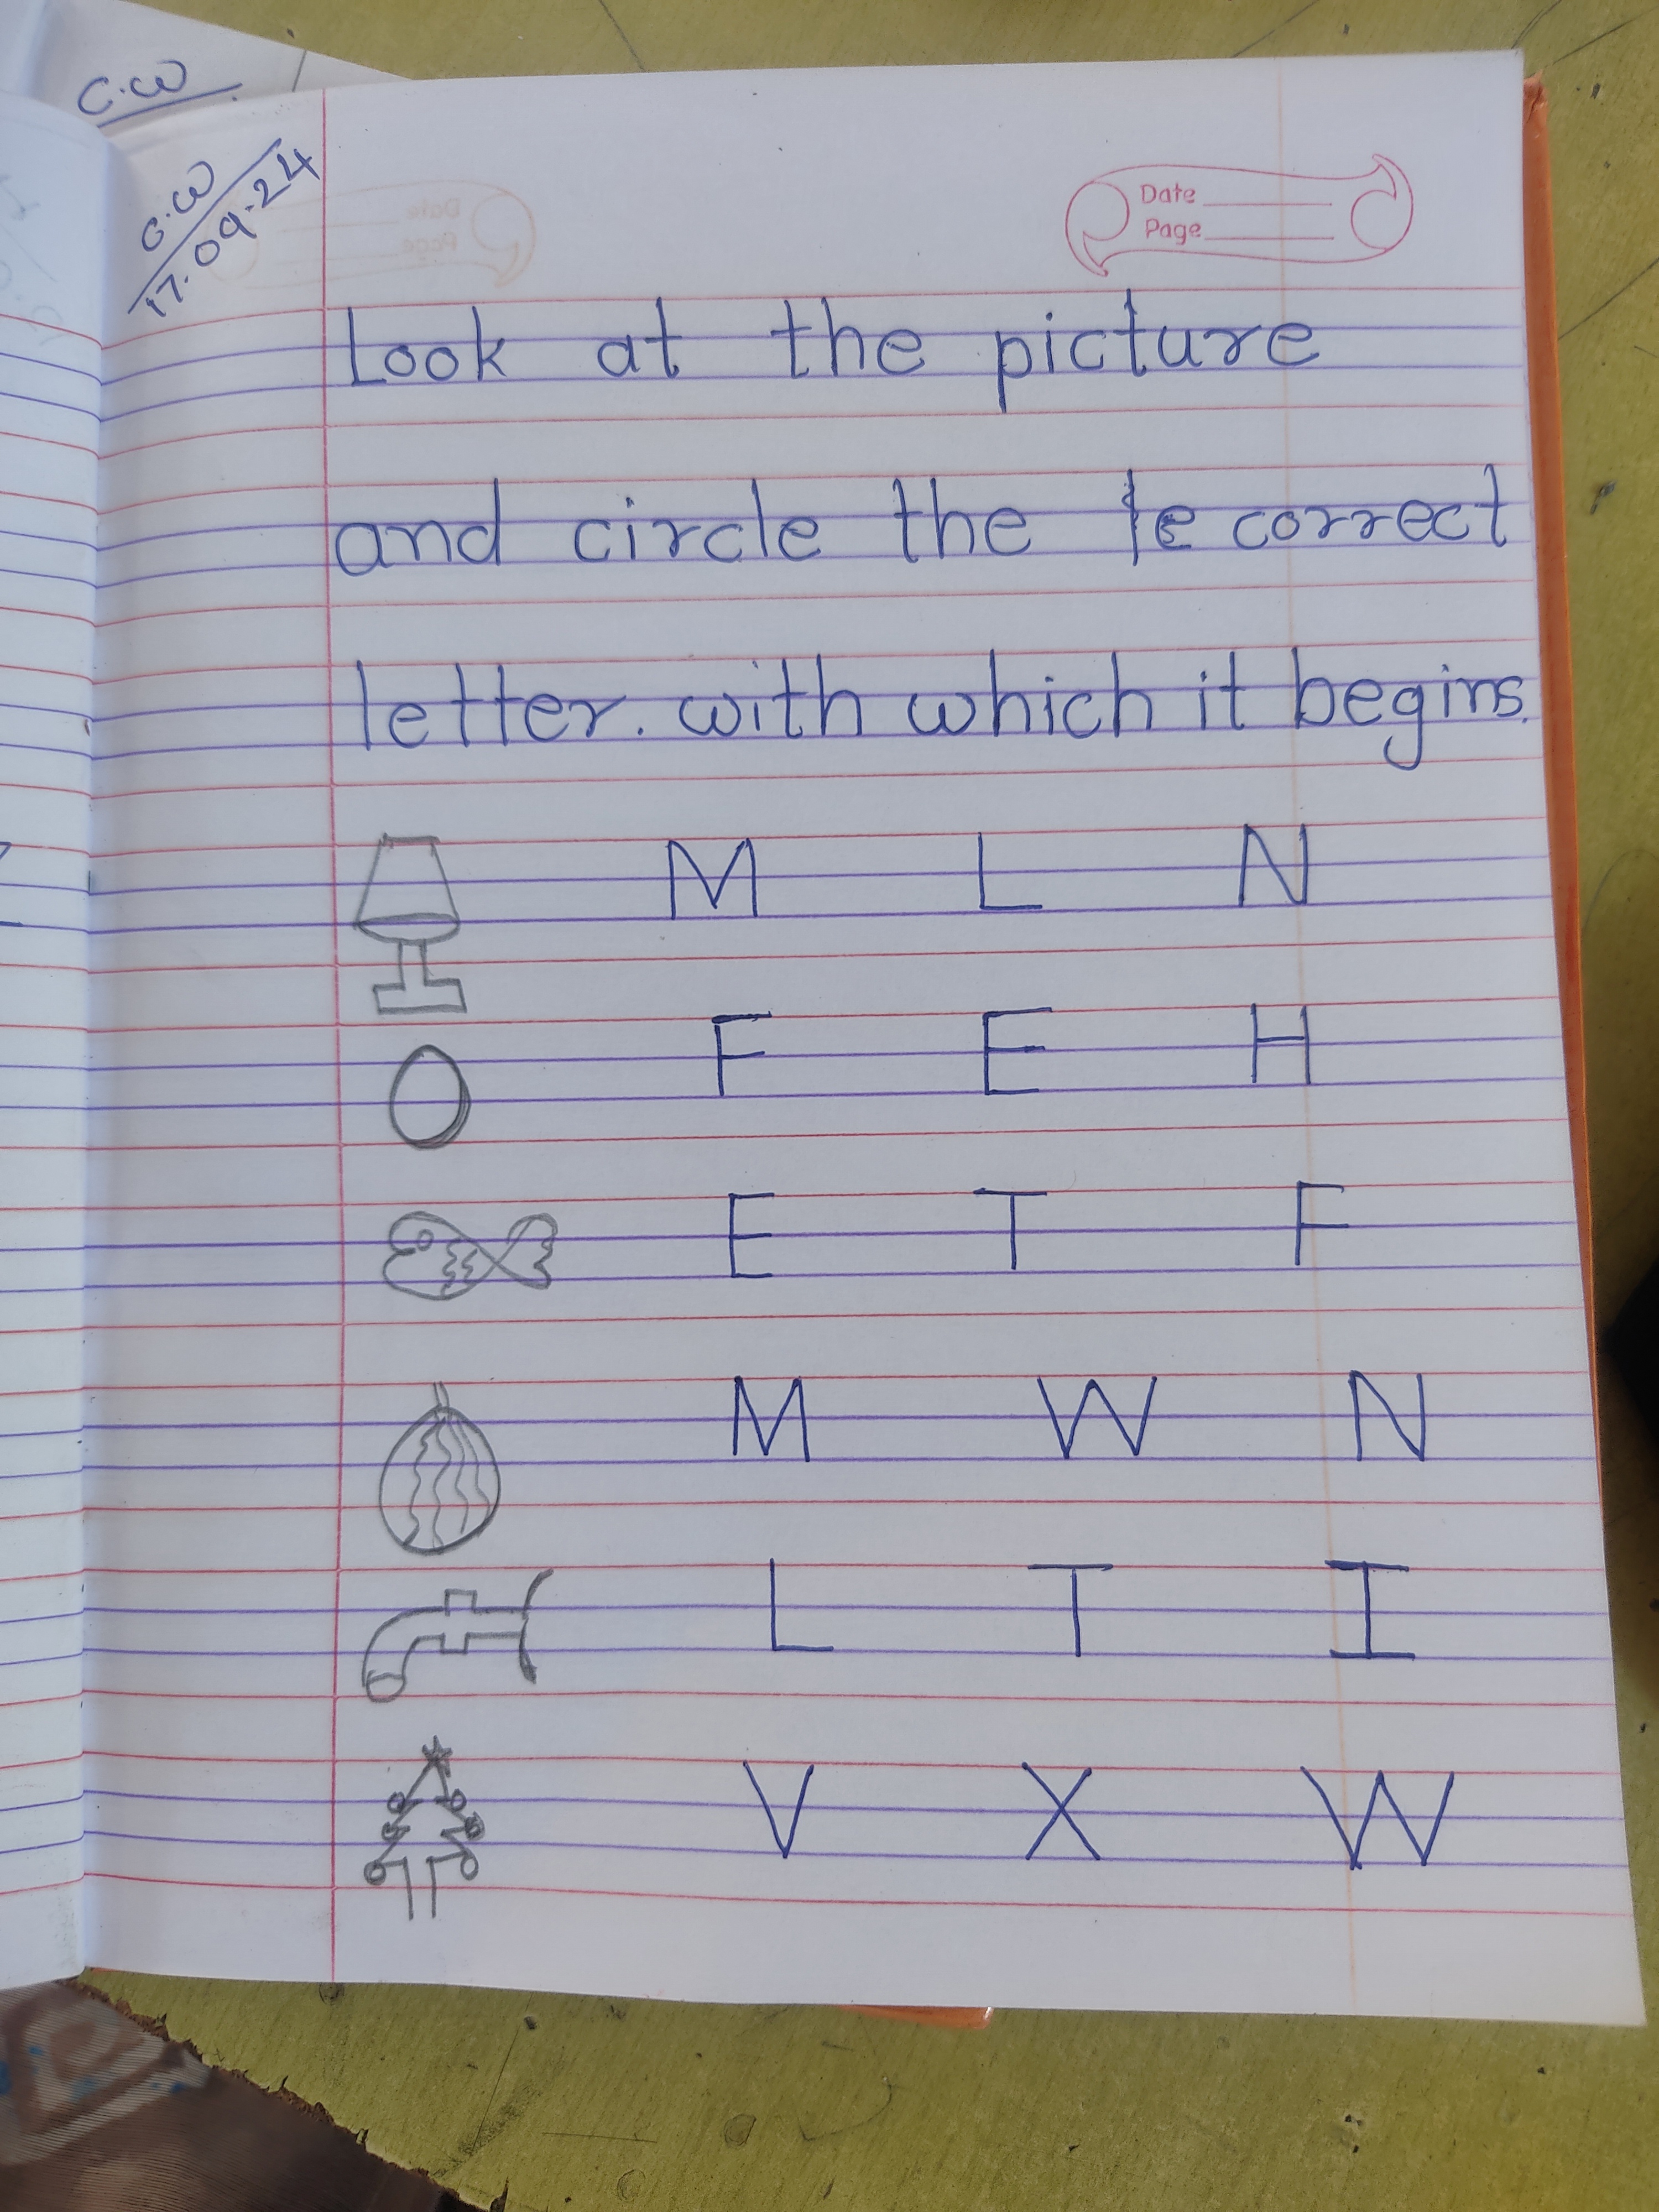 C.W
C.W
17.09.24
Date
Page
Look at the picture
and circle the te correct
letter. with which it begins.
M L N
F E H
E T F
M W N
L T I
V X W